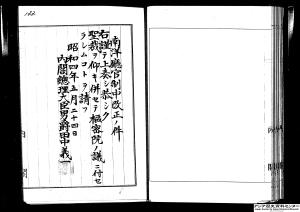 南洋廳官制中改正ノ件
右謹テ上奏シ恭シク
聖裁ヲ仰キ併セテ樞密院ノ議ニ付セ
ラレムコトヲ請フ
昭和四年五月二十四日
内閣總理大臣男爵田中義一